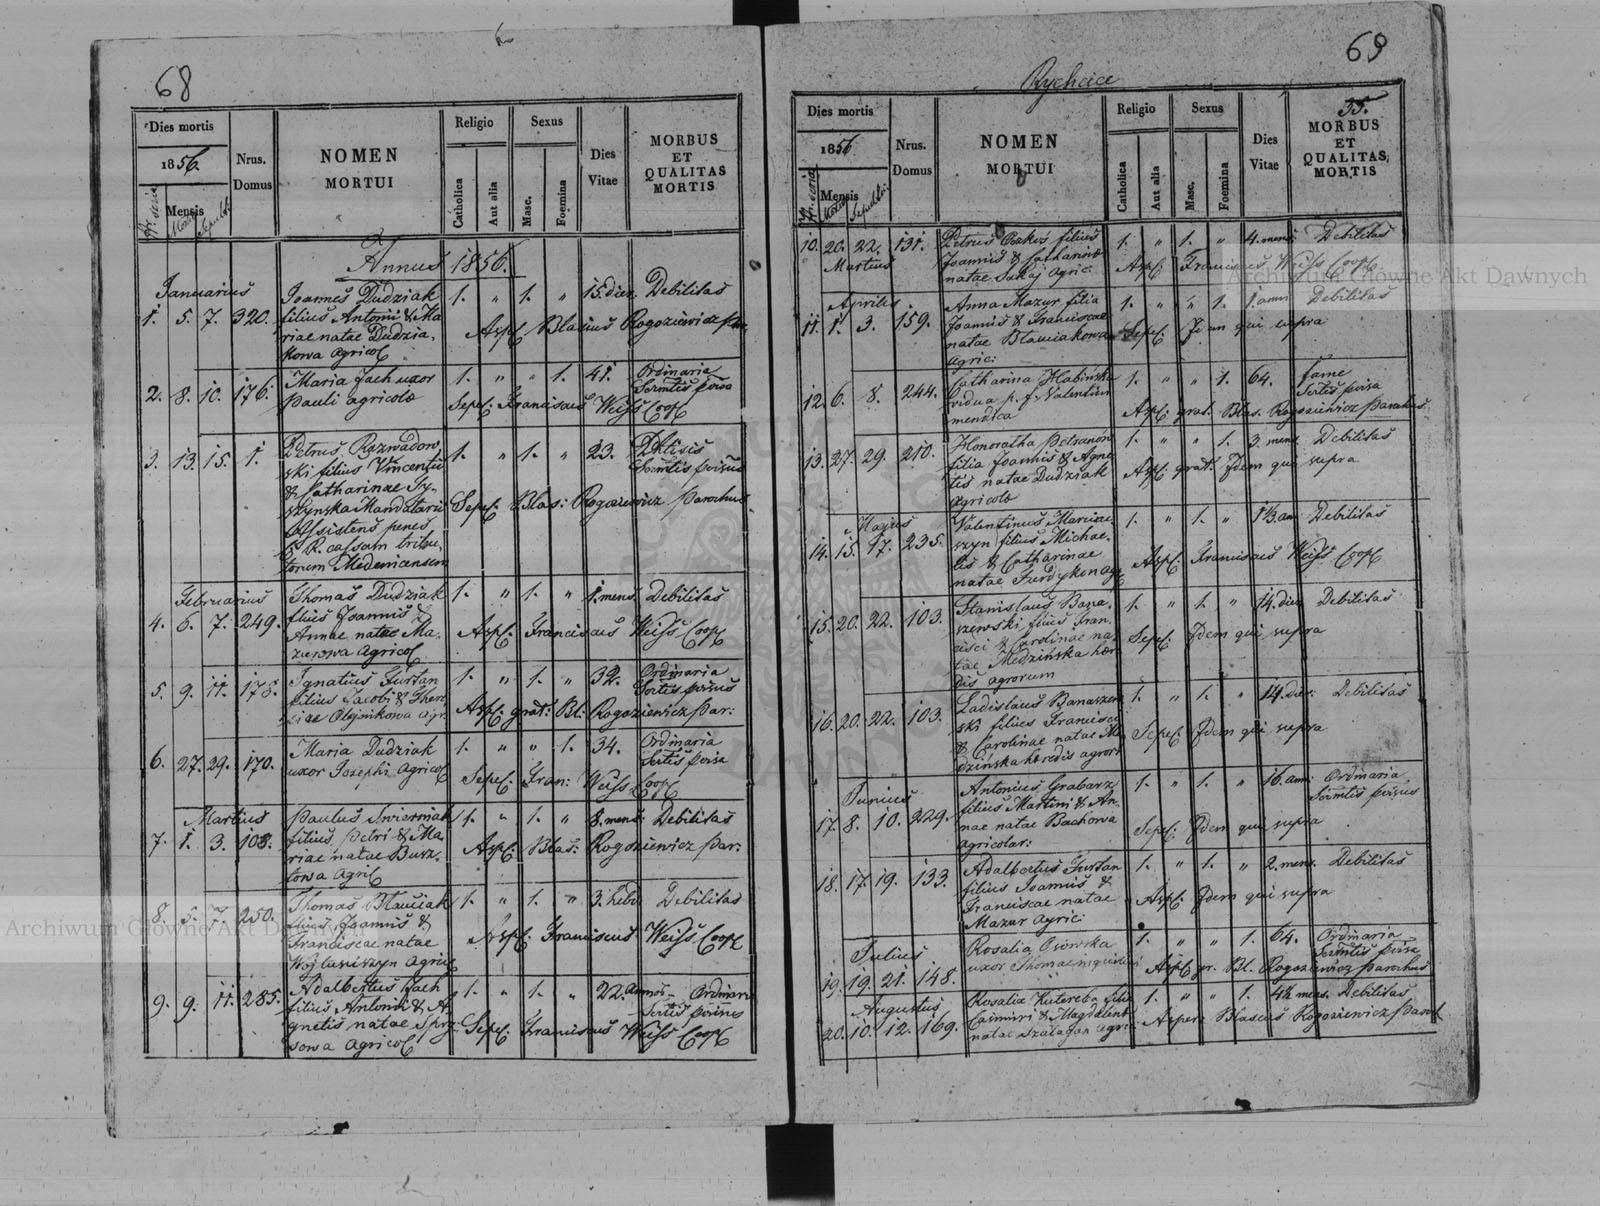 68
Dies mortis
1856.
Mensis
Nrus. Domus
NOMEN MORTUI
Religio
Catholica
Aut alia
Sexus
Masc.
Foemina
Dies Vitae
MORBUS ET QUALITAS MORTIS
Annus 1856.
Januarius
1. 5. 7. 320. Joannes Dudziak 1. " 1. " 15. dier. Debilitas
filius Antonii & Ma
riae natae Dudzia,
kowa agricol
Aspel. Blasius Rogoziewicz Par.
2. 8. 10. 176. Maria Jach uxor 1. " " 1. 41. Ordinaria
Pauli agricolae
Sepel: Franciscus Weiss Coop
3. 13. 15. 1. Petrus Rozwadow 1. " 1. " 23.
ski filius Vincentii
& Catharinae
szynska Mandatarii
Assistens penes
Sepel: Blas: Rogoziewicz Parochus
Februarius
4. 6. 7. 249. Thomas Dudziak 1. " 1. " 1. mens. Debilitas
filius Joannis &
Annae natae Ma,
zurowa agricol
Aspel: Franciscus Weiss Coop
5. 9. 11. 178. Ignatius Furtan 1. " 1. " 32. Ordinaria
filius Jacobi &
Olejnikowa agr.
Aspel: grat: Bl: Rogoziewicz Par:
6. 27. 29. 170. Maria Dudziak 1. " " 1. 34. Ordinaria
uxor Josephi agricol
Sepel: Fran: Weiss Coop
Martius
7. 1. 3. 103. Paulus 1. " 1. " 8. mens. Debilitas
filius Petri & Ma,
riae natae Bursz,
towa agric
Aspel: Blas: Rogoziewicz Par:
8. 5. 7. 250. Thomas Blauciak 1. " 1. " 3. hebd Debilitas
filius Joannis &
Franciscae natae
agric
Aspel: Franciscus Weiss Coop
9. 9. 11. 285. Adalbertus Jach 1. " 1. " 22. annor. Ordinaria
filius Antonii & A
gnetis natae
sowa agricol
Sepel: Franciscus Weiss Coop
Rychcice
69
35.
Dies mortis
1856
Mensis
Nrus. Domus
NOMEN MORTUI
Religio
Catholica
Aut alia
Sexus
Masc.
Foemina
Dies Vitae
MORBUS ET QUALITAS MORTIS
10. 20. 22. 131. Petrus filius 1. " 1. " 4. mens. Debilitas
Martius
Joannis & Catharinae
natae Sakaj agric:
Aspel: Franciscus Weiss Coop
Aprilis
11. 1. 3. 159. Anna Mazur filia 1. " " 1. 1. ann. Debilitas
Joannis & Franciscae
natae Blauciakowa
agric:
Sepel: Idem qui supra
12. 6. 8. 244. Catharina Habinska 1. " " 1. 64. fame
vidua p. f. Valentini
mendica
Aspel: grat: Blas. Rogoziewicz Parochus
13. 27. 29. 210. Honoratha 1. " " 1. 3. mens. Debilitas
filia Joannis & Agne
tis natae Dudziak
agricolae
Aspel: grat: Idem qui supra
Majus
14. 15. 17. 235. Valentinus Marcini 1. " 1. " 1 1/3. an. Debilitas
szyn filius Michae,
lis & Catharinae
natae
Aspel: Franciscus Weiss Coop
15. 20. 22. 103. Stanislaus Bana, 1. " 1. " 14. dier. Debilitas
szewski filius Fran,
cisci & Carolinae na
tae Medzińska hær
dis agrorum
Sepel: Idem qui supra
16. 20. 22. 103. Ladislaus Banaszew 1. " 1. " 14. dier. Debilitas
ski filius Francisci
& Carolinae natae Me
dzińska heredis agror
Sepel: Idem qui supra
Junius
17. 8. 10. 229. Antonius Grabarz 1. " 1. " 16. ann. Ordinaria
filius Martini & An,
nae natae Bachowa
agricolar:
Sepel: Idem qui supra
18. 17. 19. 133. Adalbertus Furtan 1. " 1. " 2. mens. Debilitas
filius Joannis &
Franciscae natae
Mazur agric:
Aspel: Idem qui supra
Julius
19. 19. 21. 148. Rosalia Osowska 1. " " 1. 64. Ordinaria
uxor Thomae inquilini
Aspel gr. Bl. Rogoziewicz Parochus
Augustus
20. 10. 12. 169. Rosalia Kutereba filia 1. " " 1. 4 1/2 mens. Debilitas
Casimiri & Magdalenae
natae Szalagan agric:
Blasius Rogoziewicz Paroch
Archiwum Główne Akt Dawnych
Archiwum Główne Akt Dawnych